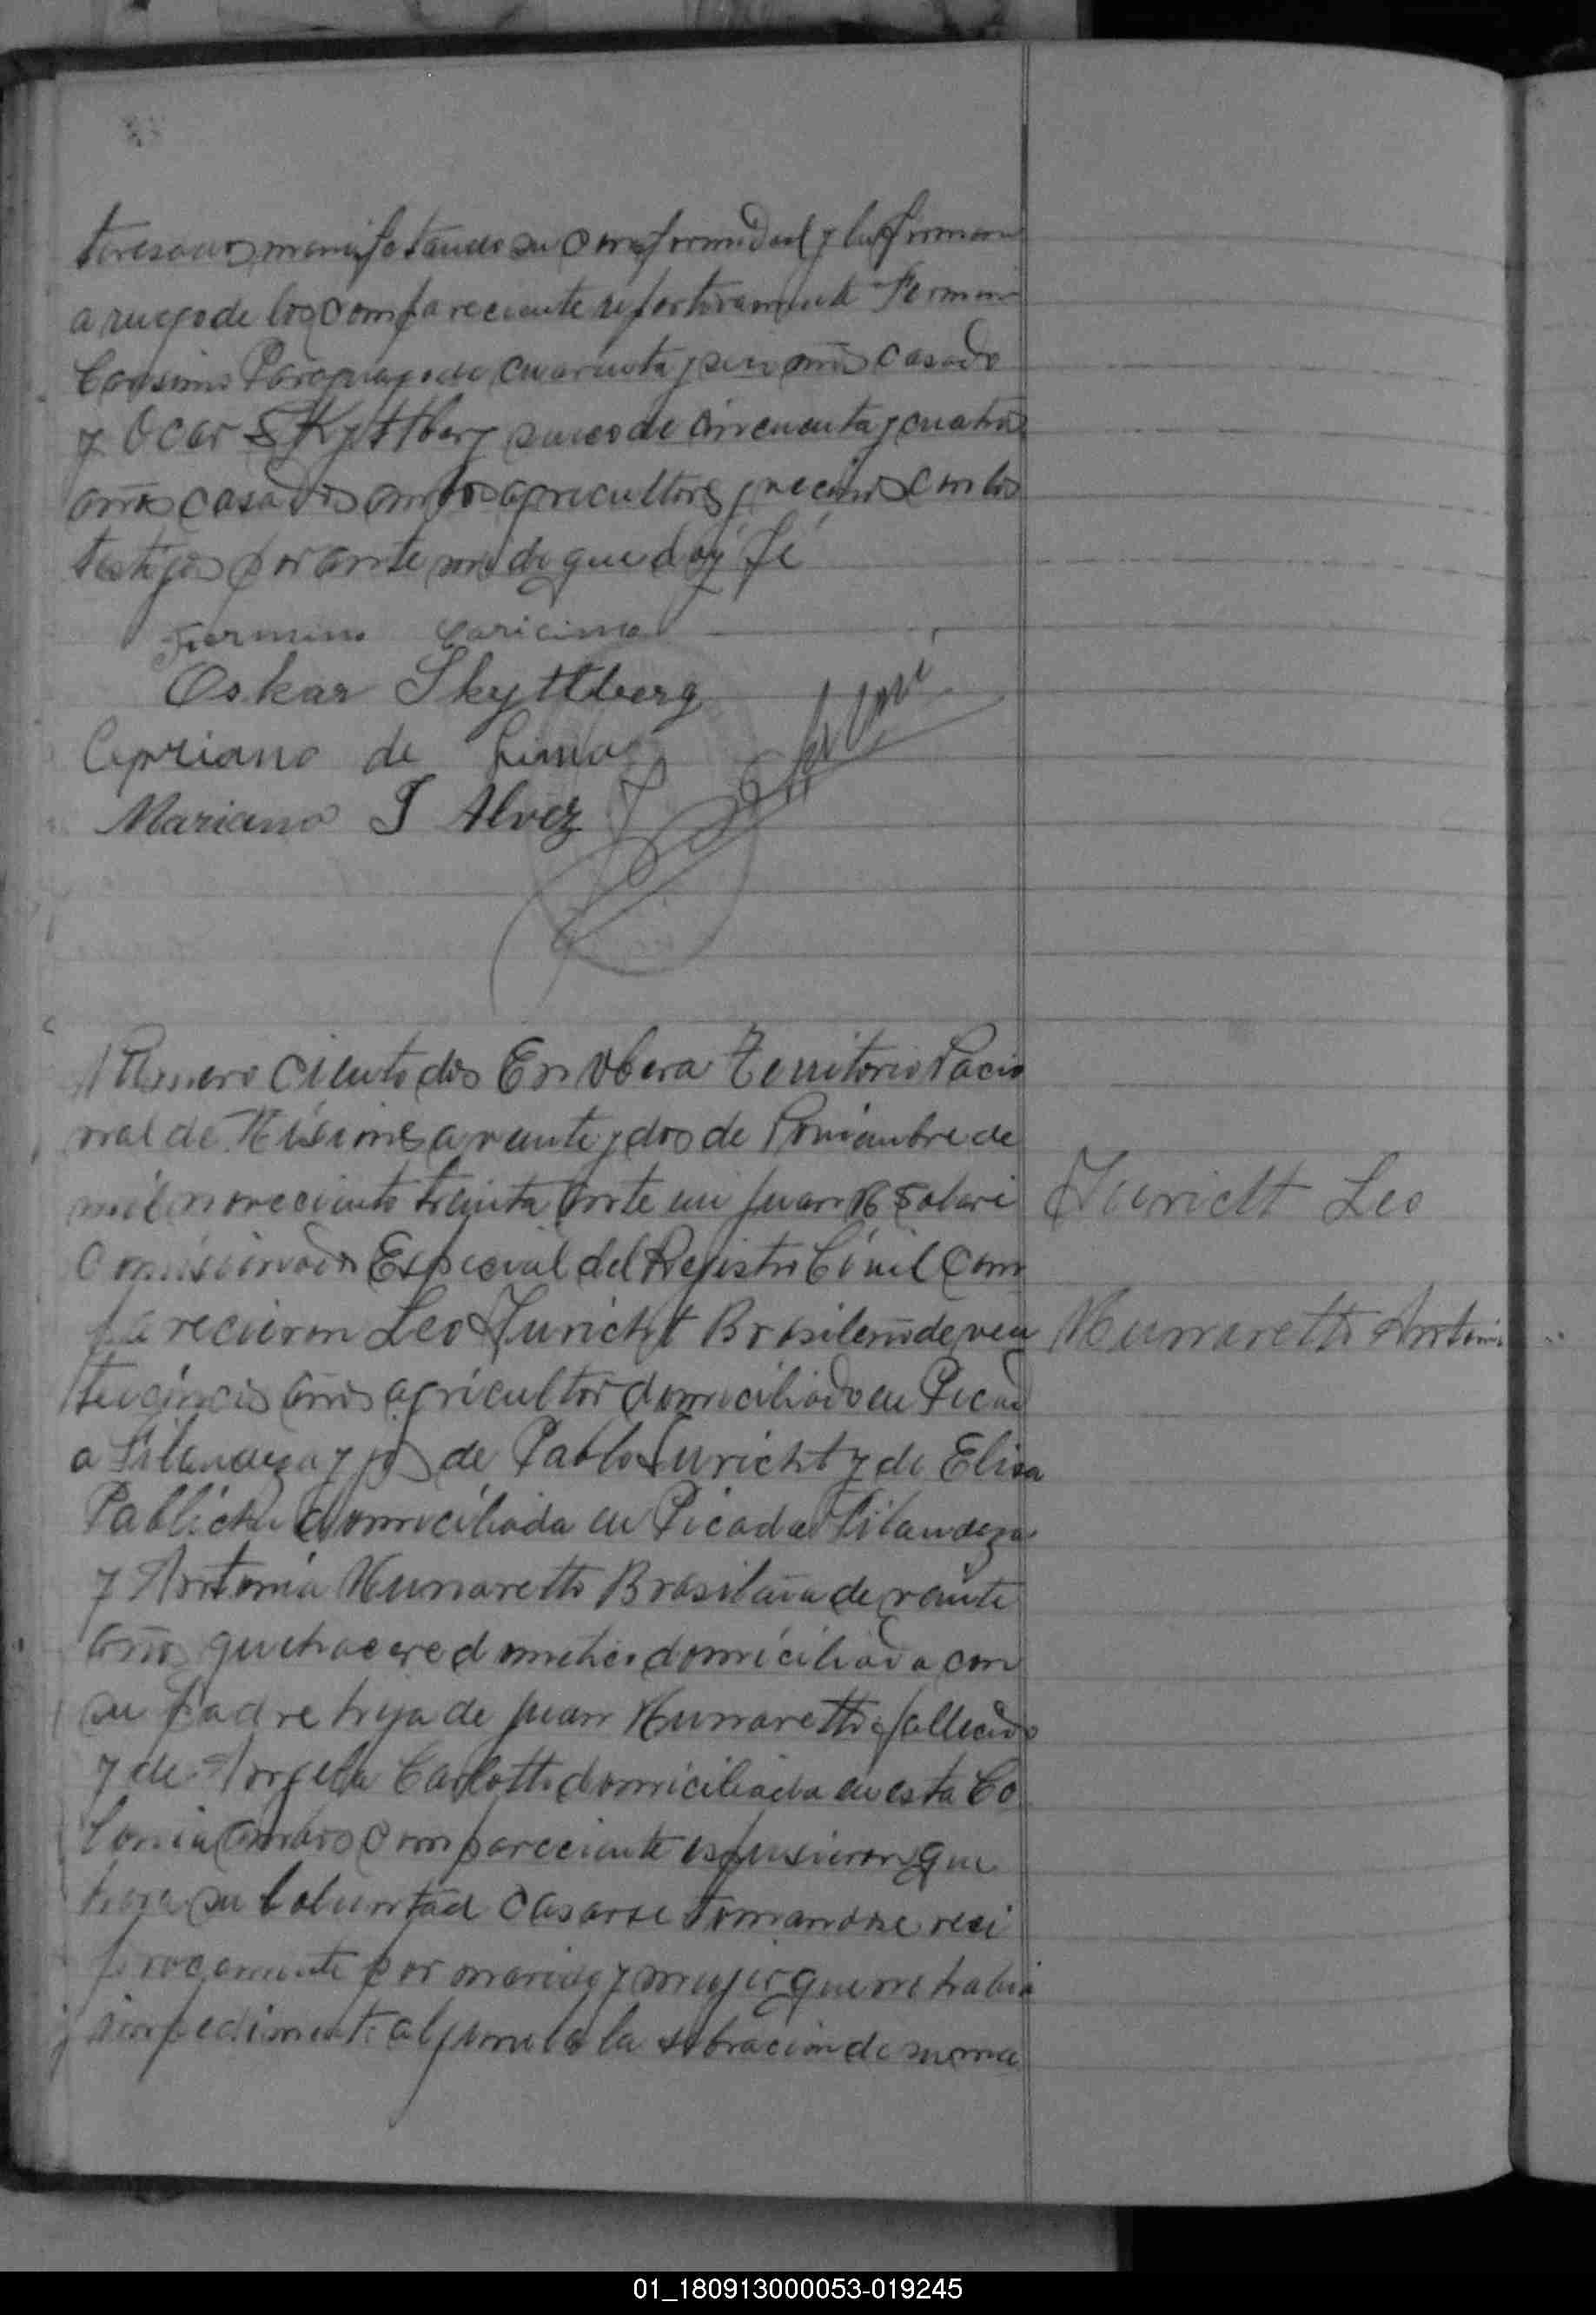 teresados manifestando su conformidad y la firman
a ruego de los compareciente respectivamente Fermin
Paraguayo de cuarenta y seis años casado
y Ocar Skyttberg sueco de cincuenta y cuatro
años casados ambos agricultores y vecinos con los
testigos por ante mi de que doy fé
Fermino Caricima
Oskar Skyttberg
Cipriano de Lima
Mariano J Alvez
Numero ciento dos En Obera Territorio Nacio
nal de Misiones a veinte y dos de Noviembre de
mil noveciento treinta Ante mi Juan B Solari
Comisionado Especial del Registro Civil Com
parecieron Leo Juricht Brasileño de vein
Juricht Leo
Munaretto Antonia
ticinco años agricultor domiciliado en Picad
a Filandeza y jo de Pablo Juricht y de Elisa
domiciliada en Picada Filandeza
y Antonia Munaretto Brasilaña de veinte
años quehacere domestico domiciliada con
su padre hija de Juan Munaretto fallecido
y de Angela Carlotto domiciliada en esta Co
lonia ambos compareciente espusieron que
hera su boluntad casarse tomandose reci
procamente por marido y mujer que no habia
impedimento alguno a la de su ma
01_180913000053-019245